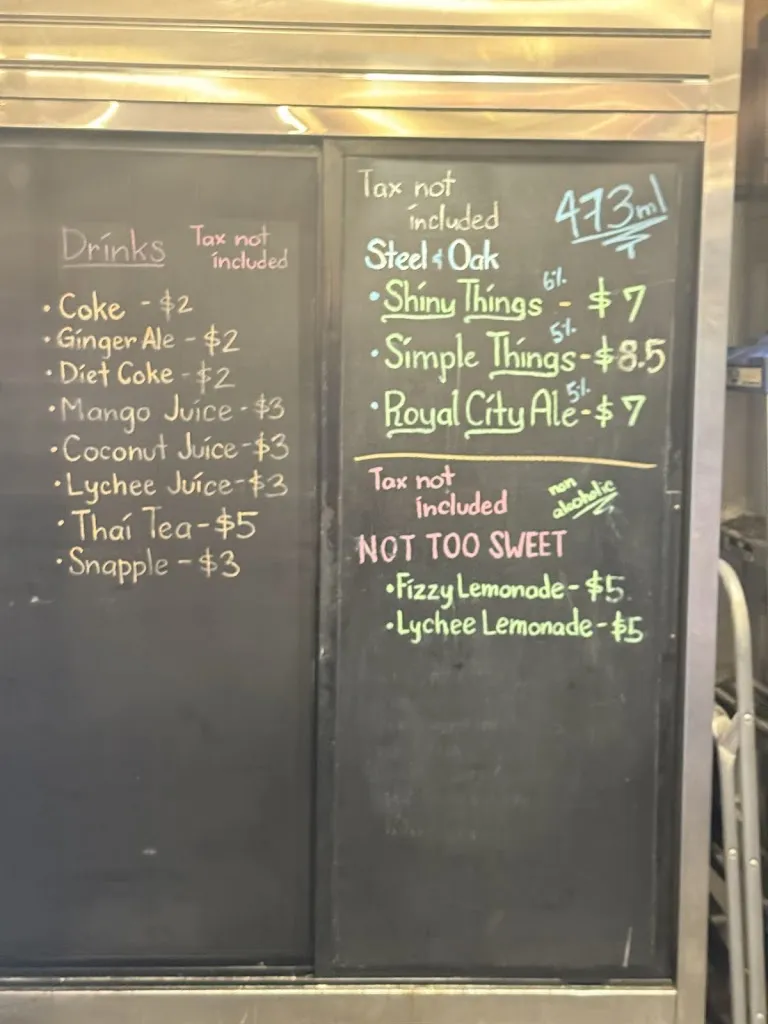 Drinks
Tax not
included
• Coke - $2
• Ginger Ale - $2
• Diet Coke - $2
• Mango Juice - $3
• Coconut Juice - $3
• Lychee Juice - $3
• Thai Tea - $5
• Snapple - $3
Tax not
included
473ml
Steel & Oak
• Shiny Things 6% - $7
• Simple Things 5% - $8.5
• Royal City Ale 5% - $7
Tax not
included
non
alcoholic
NOT TOO SWEET
• Fizzy Lemonade - $5
• Lychee Lemonade - $5